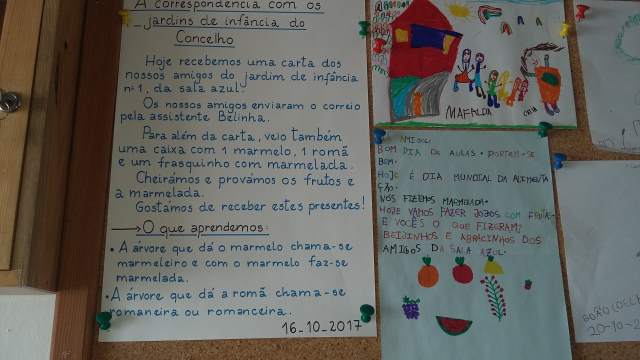 A correspondência com os
jardins de infância do
Concelho
Hoje recebemos uma carta dos
nossos amigos do jardim de infância
nº 1, da sala azul.
Os nossos amigos enviaram o correio
pela assistente Belinha.
Para além da carta, veio também
uma caixa com 1 marmelo, 1 romã
e um frasquinho com marmelada.
Cheirámos e provámos os frutos e
a marmelada.
Gostámos de receber estes presentes!
→ O que aprendemos:
• A árvore que dá o marmelo chama-se
marmeleiro e com o marmelo faz-se
marmelada.
• A árvore que dá a romã chama-se
romaneira ou romanceira.
16-10-2017
MAFALDA
AMIGOS:
BOM DIA DE AULAS. PORTEM-SE
BEM.
HOJE É DIA MUNDIAL DA ALIMENTA
ÇÃO.
NÓS FIZEMOS MARMELADA.
HOJE VAMOS FAZER JOGOS COM FRUTA.
E VOCÊS O QUE FIZERAM?
BEIJINHOS E ABRACINHOS DOS
AMIGOS DA SALA AZUL.
20-10-2